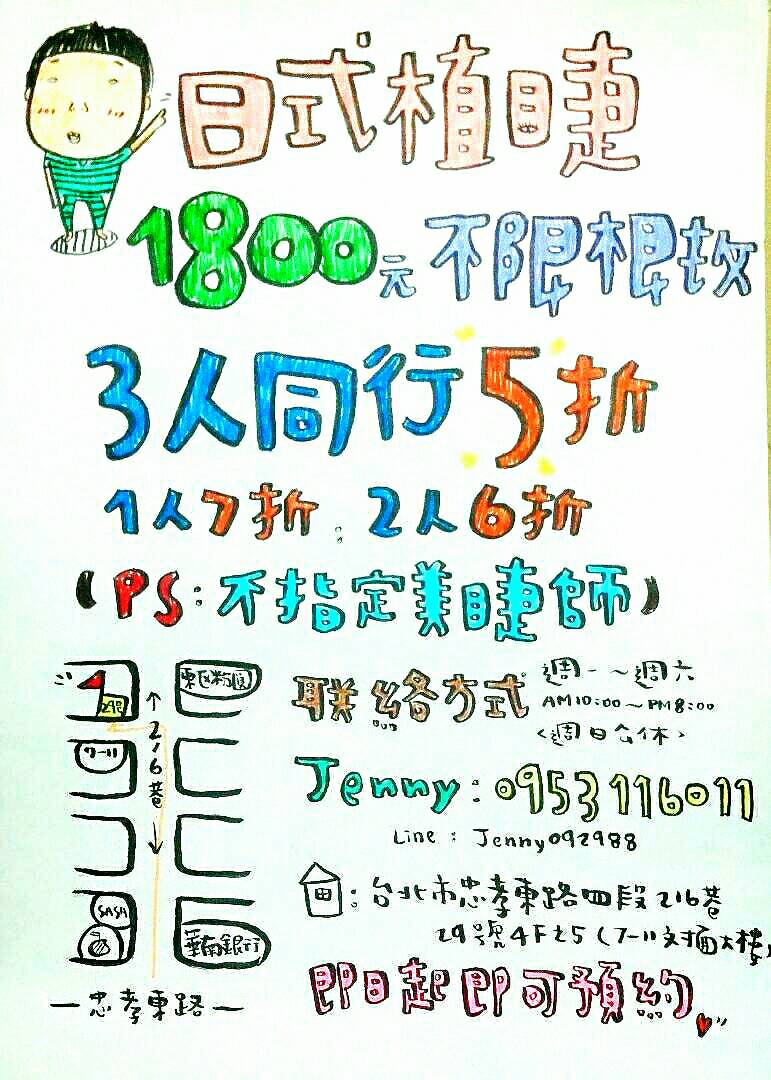 日式植睫
1800元 不限根數
3人同行5折
1人7折.2人6折
(PS:不指定美睫師)
聯絡方式
週一~週六
AM10:00~PM8:00
<週日公休>
Jenny:0953116011
Line : Jenny092988
台北市忠孝東路四段216巷
29號4F之5(7-11 大樓)
即日起即可預約
東區粉圓
29號
↑216巷↓
7-11
SASA
華南銀行
—忠孝東路—